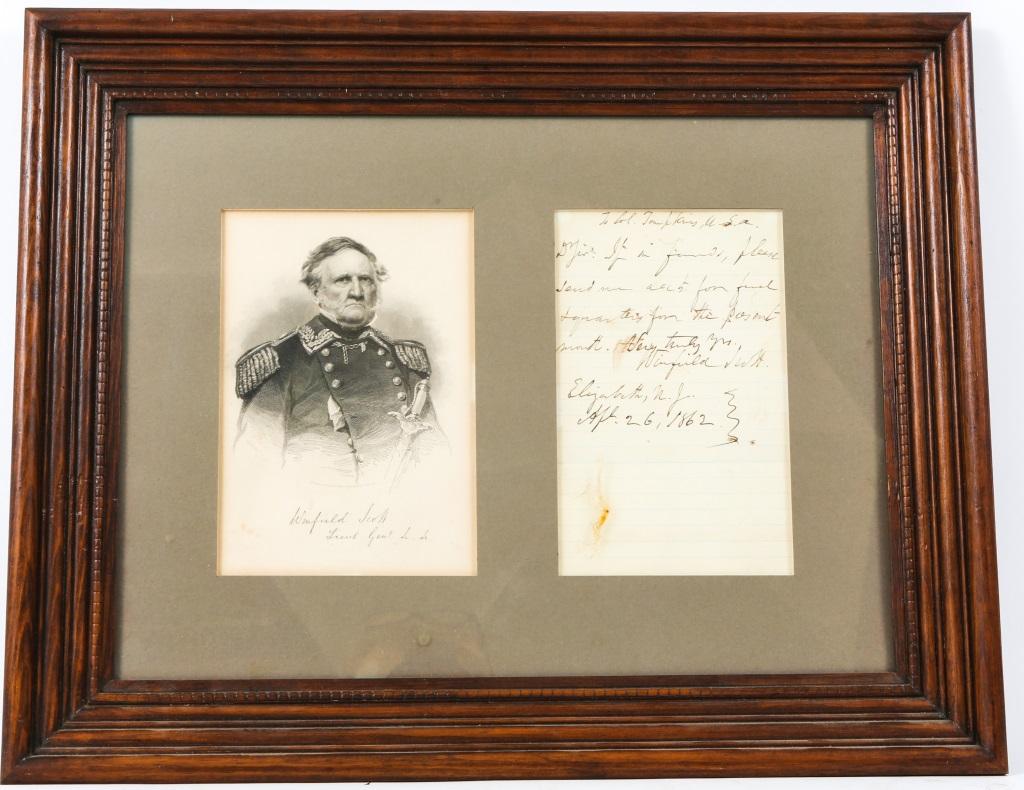 Winfield Scott
Lieut Genl
To Col. Tompkins, U.S.A.
D Sir: If in funds, please
send me acct for fuel
& quarters for the present
month. Very truly Yrs,
Winfield Scott.
Elizabeth, N.J.
Apl. 26, 1862.